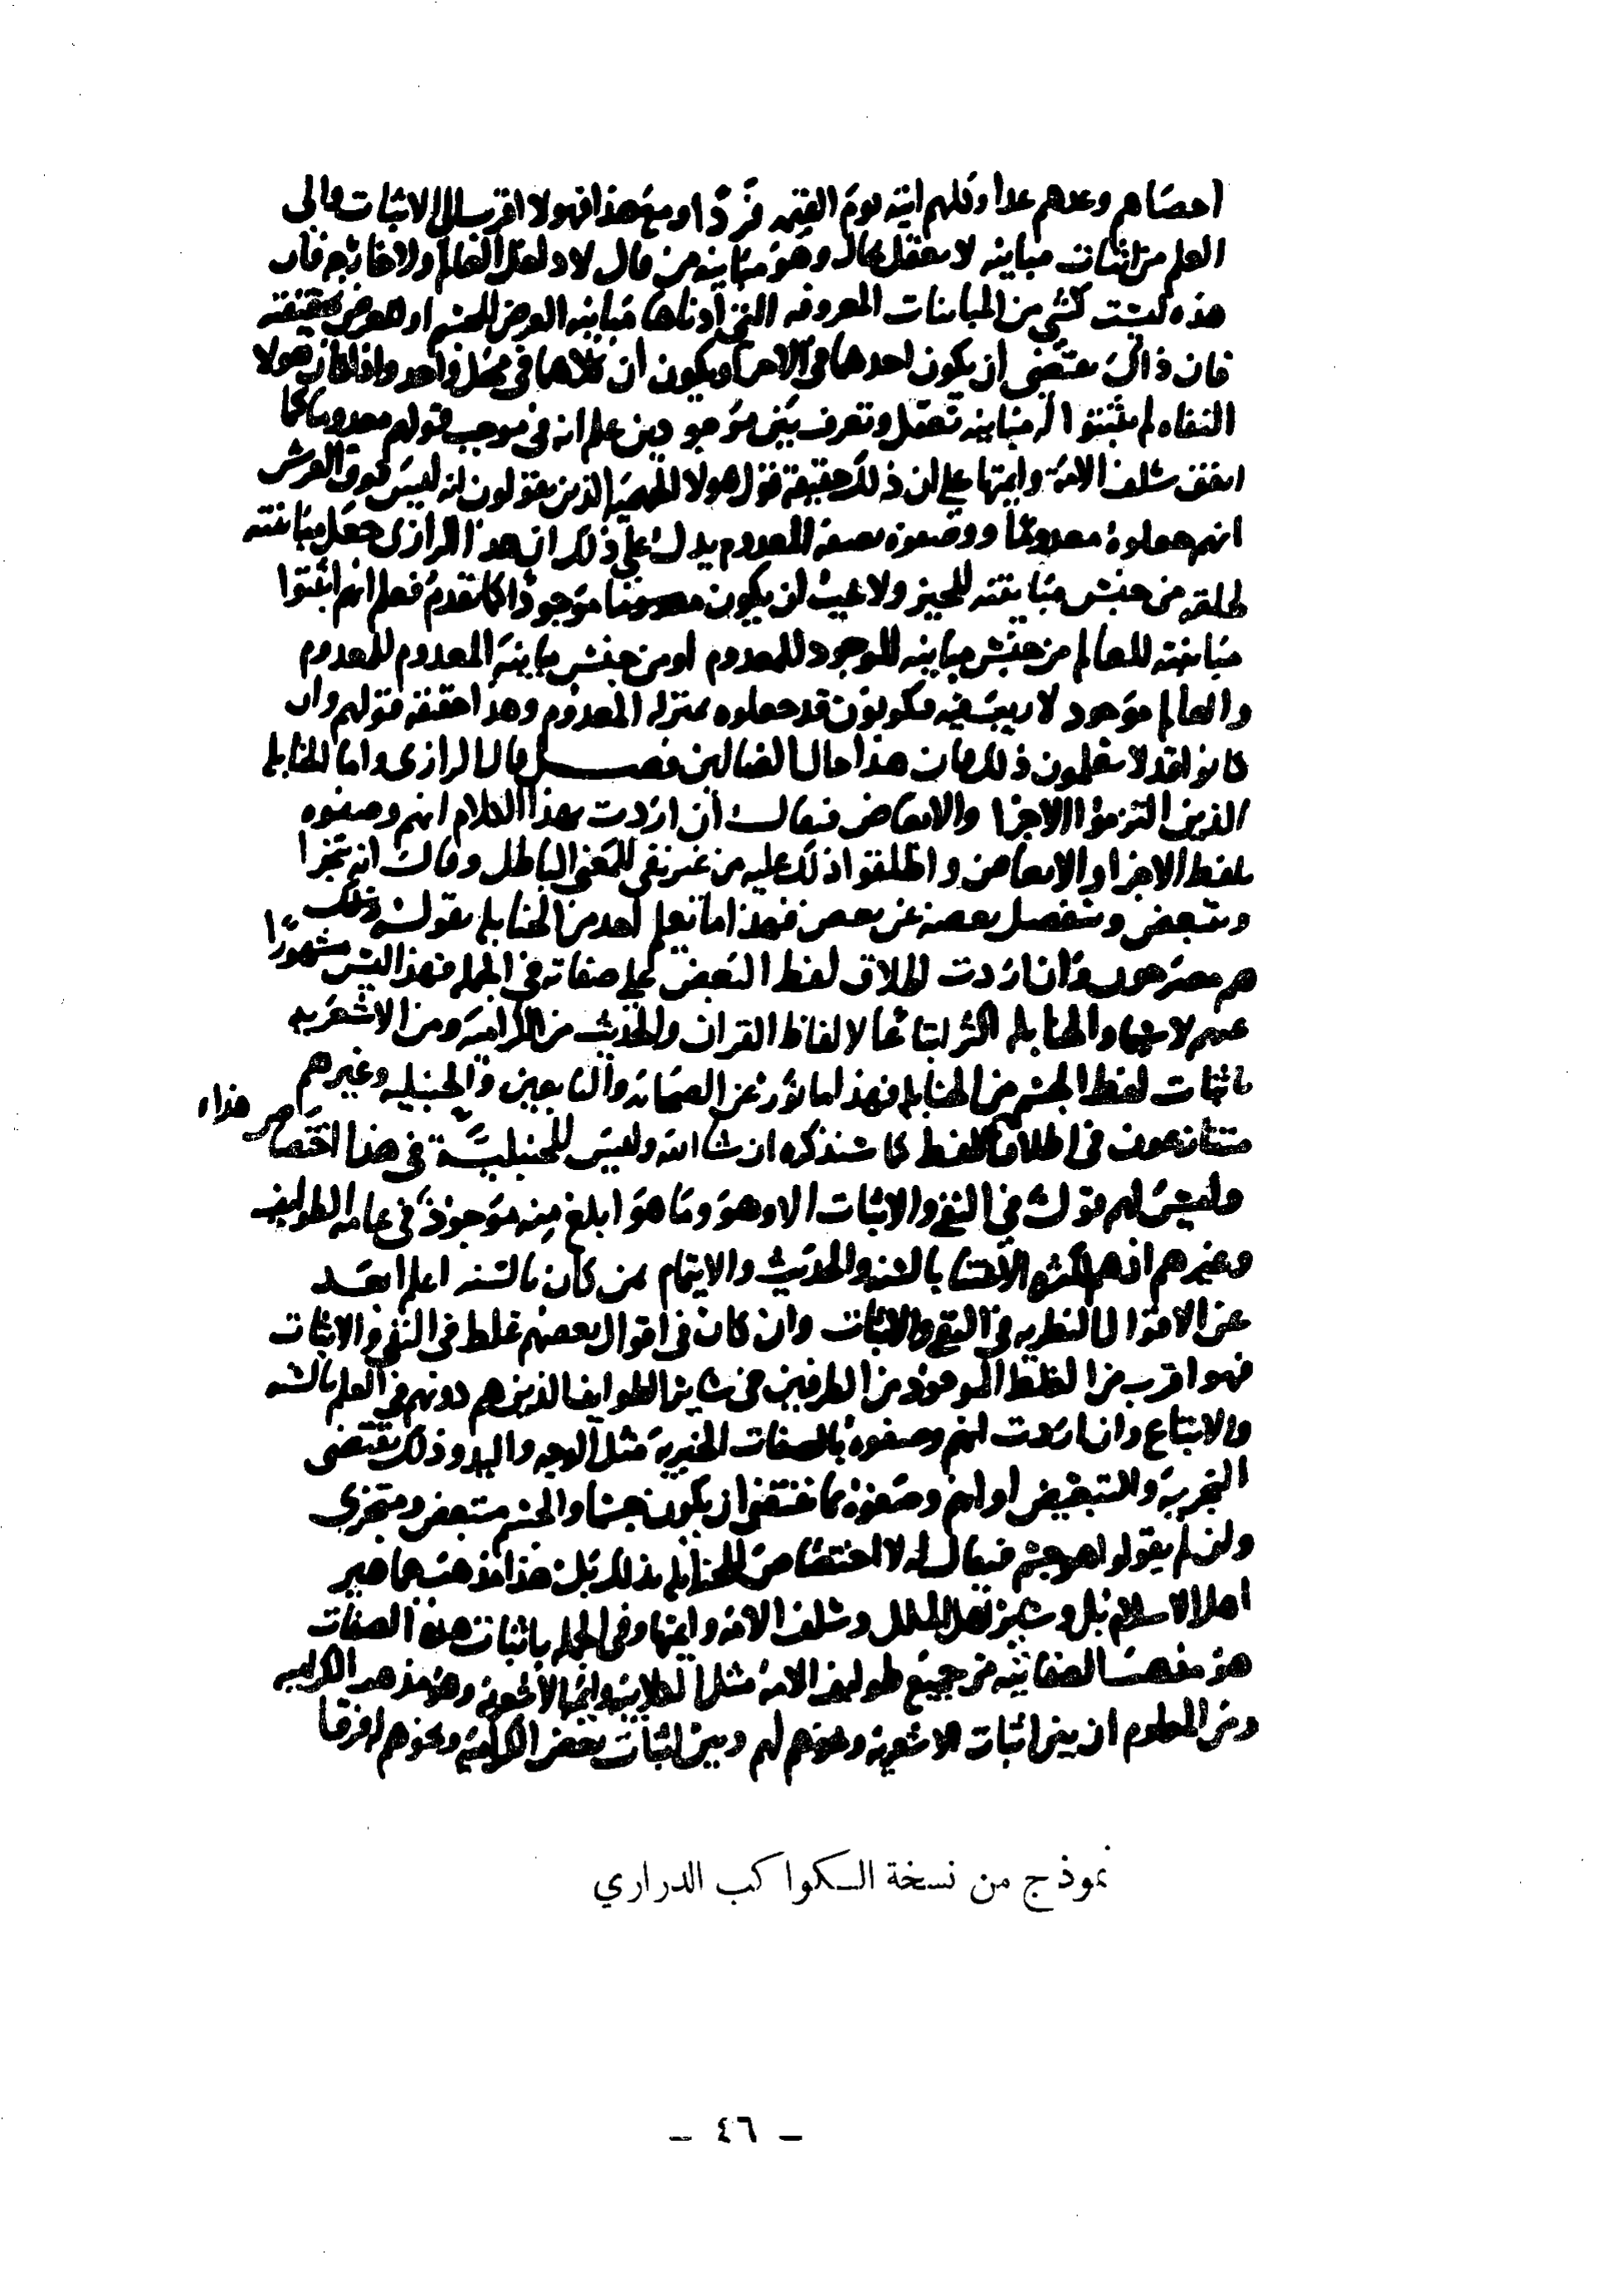 احصاهم وعدهم عدا وكلهم اتيه يوم القيمه فردا ومع هذا فهولا اقرب الى الاثبات والى
العلم من اثبات مباينه لا تعقل بحال وهو مباينه من قال لا داخل العالم ولا خارجه فان
هذه ليست كشي من المباينات المعروفه التي ادناها مباينه العرض للجسم او العرض بحقيقته
فان ذلك يقتضي ان يكون احدهما في الاخر او يكون ان كلاهما في محل واحد واذا كان هولا
النفاه لم يثبتوا له مباينه تعقل وتعرف بين موجودين علم انه في موجب قولهم معدوما كما
اتفق سلف الامة وايمتها على ان ذلك حقيقة قول هولا الجهميه الذين يقولون انه ليس فوق العرش
انهم جعلوه معدوما ووصفوه بصفه المعدوم يدل على ذلك ان هذا الرازي جعل مباينته
لخلقه من جنس مباينته للحيز ولا يجب ان يكون موجودا كما تقدم فعلم انهم اثبتوا
مباينته للعالم من جنس مباينه الموجود للمعدوم او من جنس مباينة المعدوم للمعدوم
والعالم موجود لا ريب فيه فيكونون قد جعلوه بمنزله المعدوم وهذا حقيقه قولهم وان
كانوا قد لا يعلمون ذلك فان هذا حال الضالين فصل قال الرازي واما الحنابله
الذين التزموا الاجزا والابعاض فيقال ان اردت بهذا الكلام انهم وصفوه
بلفظ الاجزا والابعاض واطلقوا ذلك عليه من غير نفي للمعنى الباطل وقال انه يتجزا
ويتبعض وينفصل بعضه عن بعض فهذا ما نعلم احد من الحنابله يقوله
هم مصرحون وان اردت اطلاق لفظ البعض على صفاته في الجمله فهذا ليس مشهورا
عنهم لا سيما والحنابله اكثر اتباعا لالفاظ القران والحديث من الكراميه ومن الاشعريه
باثبات لفظ الجسم من الحنابله فهذا ماثور عن الصحابه والتابعين والحنبليه وغيرهم
متنازعون في اطلاق اللفظ كما سنذكره ان شا الله وليس للحنبليه في هذا اختصاص هذاء
وليس لهم قول في النفي والاثبات الا وهو وما هو ابلغ منه موجود في عامه الطوايف
وغيرهم اذ هم لكثره الاعتنا بالسنه والحديث والايتمام بمن كان بالسنه اعلم ابعد
عن الاقوال المتطرفه في النفي والاثبات وان كان في اقوال بعضهم غلط في النفي والاثبات
فهو اقرب من الغلط الموجود من الطرفين في ساير الطوايف الذين هم دونهم في العلم بالسنه
والاتباع وان اردت انهم وصفوه بالصفات الخبرية مثل الوجه واليد وذلك يقتضي
التجزية والتبعيض او انهم وصفوه بما يقتضي ان يكون جسما والجسم متبعض ومتجزي
وان لم يقولوا هو جسم فيقال له لا اختصاص للحنابله بذلك بل هذا مذهب جماهير
اهل الاسلام بل وساير اهل الملل وسلف الامة وايمتها وفي الجمله باثبات هذه الصفات
هو مذهب الصفاتيه من جميع طوايف الامه مثل الكلابيه وايمة الاشعريه وهو مذهب الكراميه
ومن المعلوم ان بين اثبات الاشعريه ونحوهم لهم وبين اثبات بعض الكراميه ونحوهم فرقا
نموذج من نسخة السكواكب الدراري
– ٤٦ –